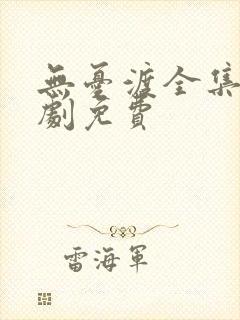 無憂渡全集
劇免費
雷海軍